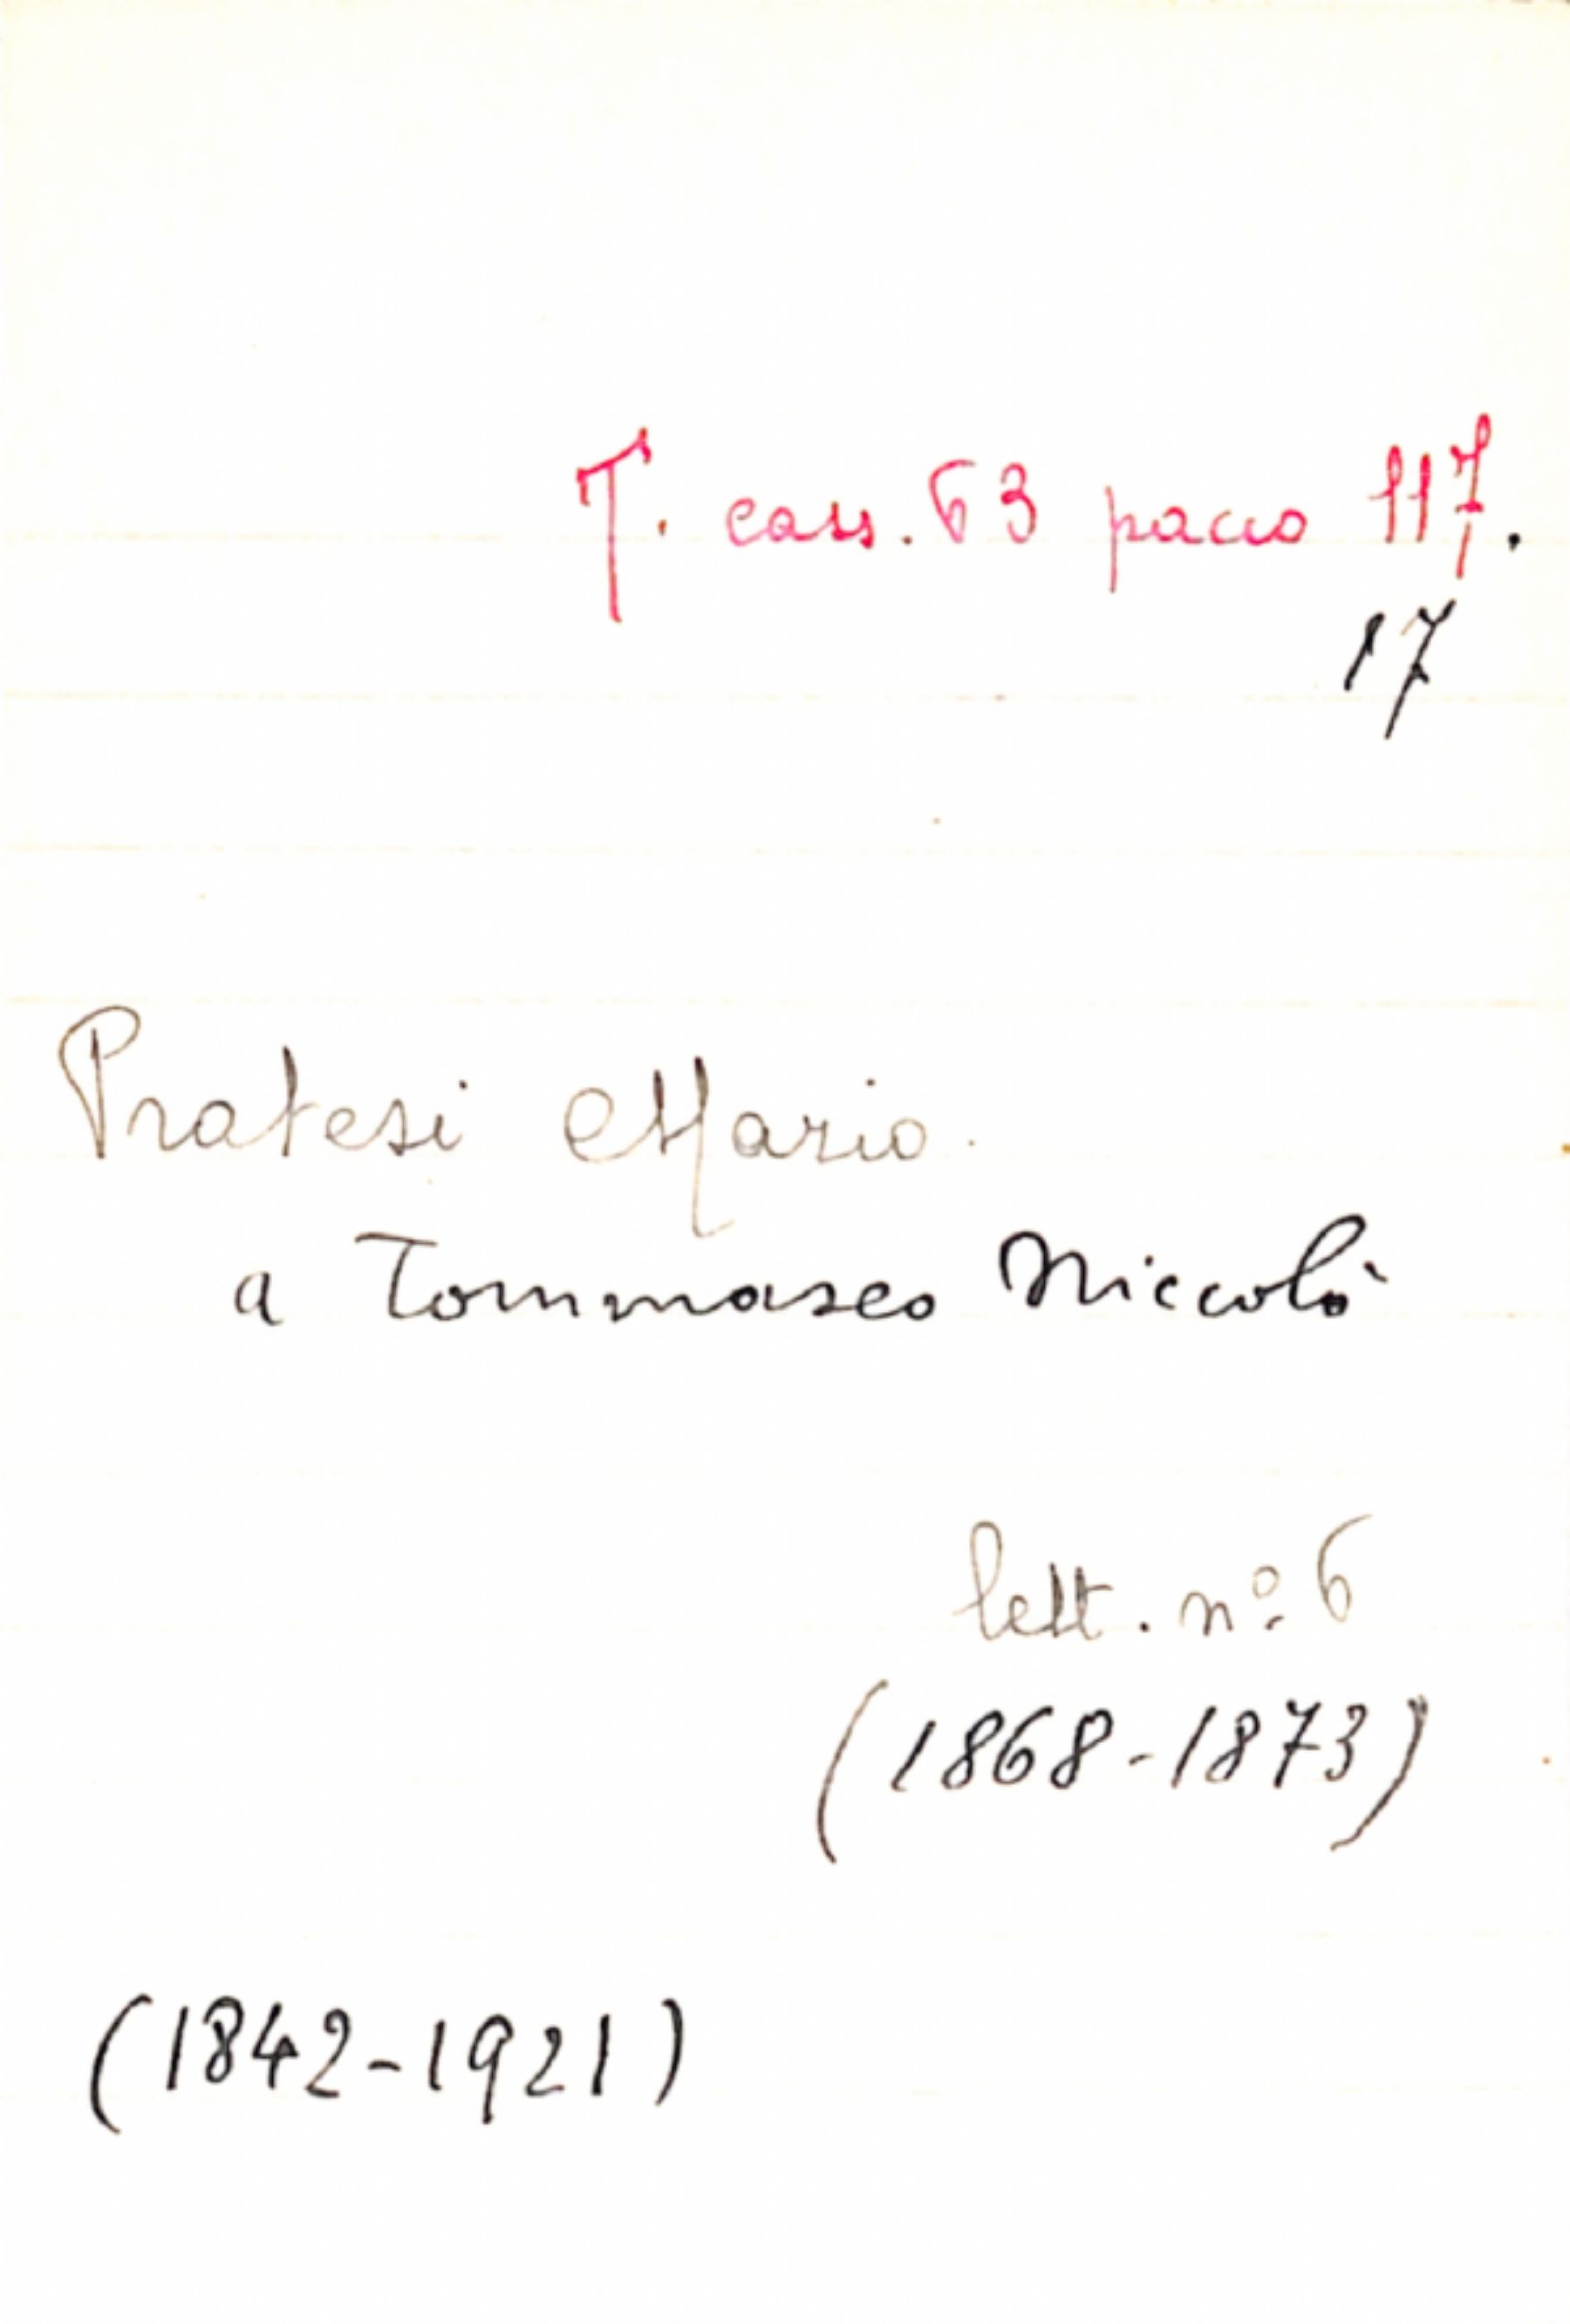 T. cass. 63 pacco 117.
17
Pratesi Mario.
a Tommaseo Niccolò
lett. nº 6
(1868-1873)
(1842-1921)